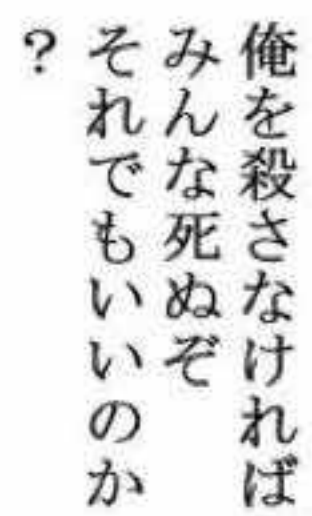 俺を殺さなければ
みんな死ぬぞ
それでもいいのか
?